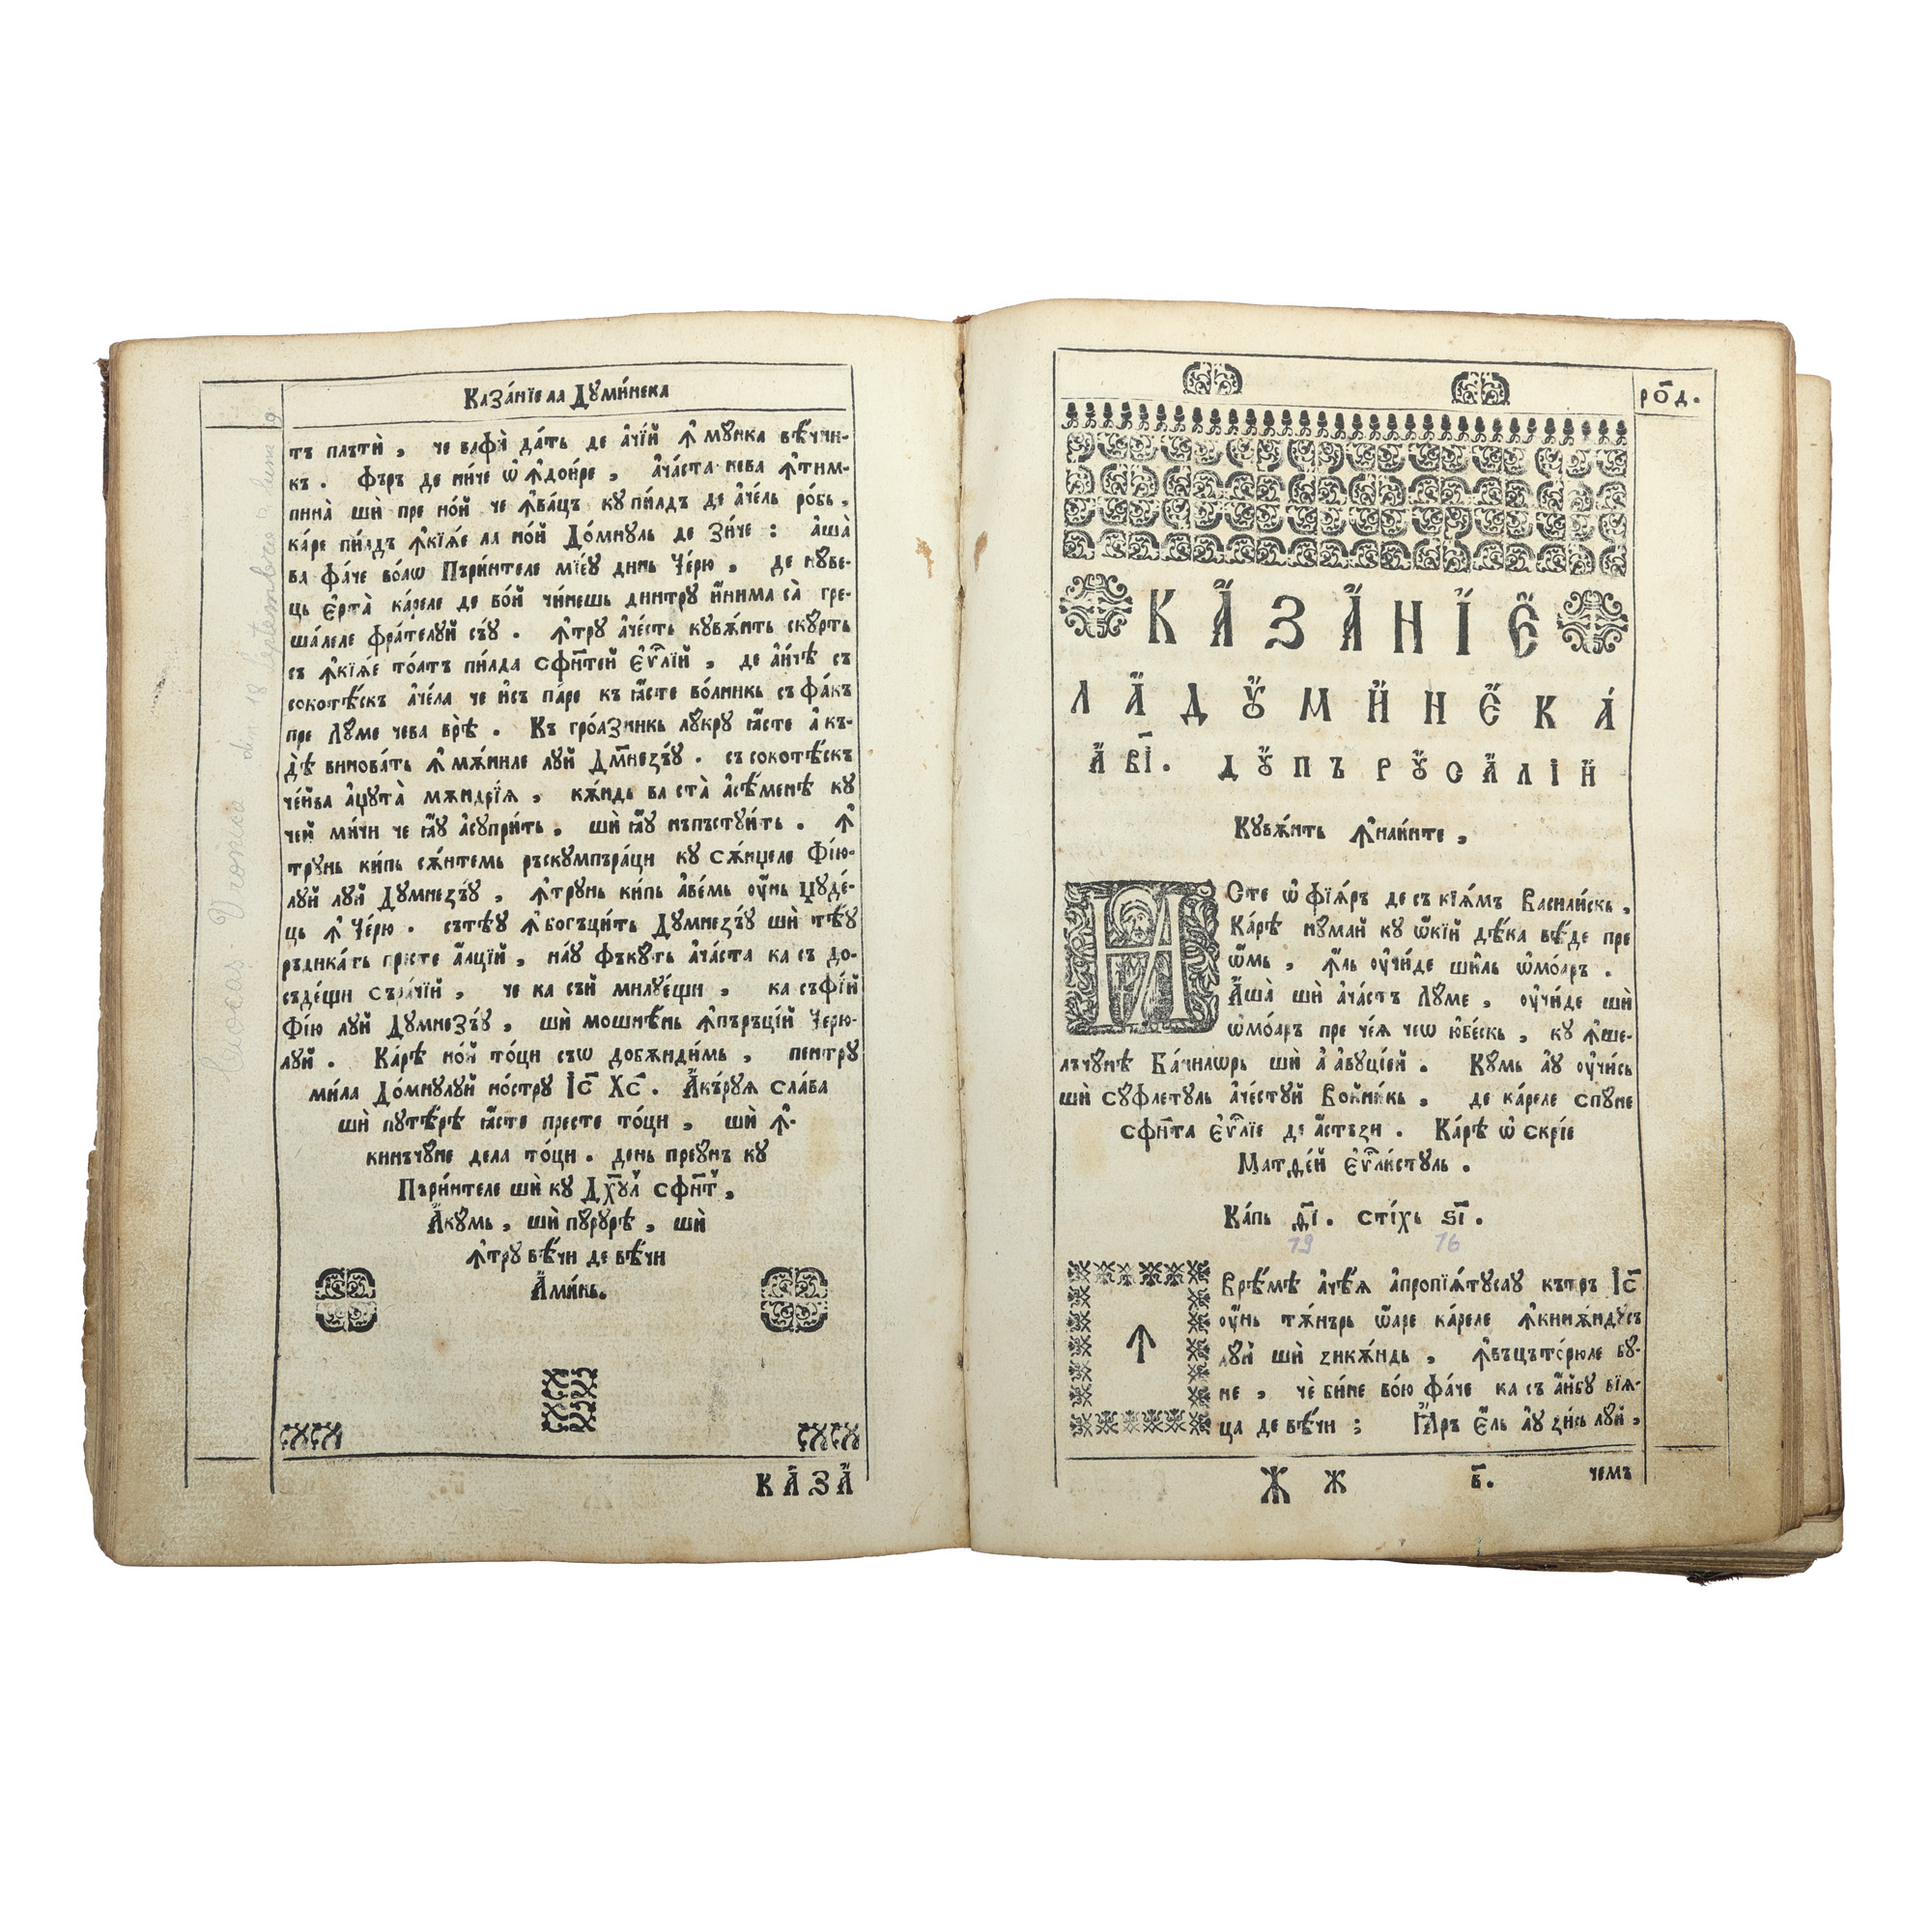 Каза́нїе ла Дꙋми́нека
тъ плътѝ , че вафѝ да́ть де а҆чі́й ꙟ҆ мꙋ́нка вѣ́чни-
къ . Фъръ де ни́че ѡ҆ ꙟ҆дои́ре , а҆ча́ста нева ꙟ҆тим-
пина̀ шѝ пре но́й че ꙟ҆ва́цъ кꙋ пи́лдъ де а҆че́ль ро́бь ,
ка́ре пи́лдъ ꙟ҆кїѧ́е ла но́й До́мнꙋль де зи́че : а҆ша̀
ва фа́че во́лѡ Пъри́нтеле мїе́ꙋ динь Че́рю , де нꙋве-
ць є҆рта̀ ка́реле де во́й чи́нешь динтрꙋ и҆́нима са̀ гре-
ша́леле фра́телꙋй съ́ꙋ . ꙟ҆трꙋ а҆че́сть кꙋвѫ́нть скꙋрть
съ ꙟ҆кїѧ́е то́атъ пи́лда сфн҃тей є҆ѵⷢ҇лїй , де аи́чѣ съ
сокотѣ́скъ а҆че́ла че и҆сь па́ре къ ꙗ҆́сте во́лникь съ фа́къ
пре Лꙋ́ме чева врѣ̀ . Къ гро́азникь лꙋ́крꙋ ꙗ҆́сте а҆ къ-
дѣ̀ винова́ть ꙟ҆ мѫ́ниле лꙋ́й Дм҃незъ́ꙋ . съ сокотѣ́скъ
че́йва а҆џꙋта̀ мѫндрі́ѧ , кѫ́ндь ва ста̀ а҆сѣ́менѣ кꙋ
че́й ми́чи че ꙗ҆́ꙋ а҆сꙋпри́ть , шѝ ꙗ҆́ꙋ нъпъстꙋи́ть . ꙟ҆
трꙋнь ки́пь сѫ́нтемь ръскꙋмпъра́ци кꙋ сѫ́нџеле Фі́ю-
лꙋй лꙋ́й Дꙋмнезъ́ꙋ , ꙟ҆трꙋнь ки́пь а҆ве́мь оу҆́нь Џꙋде́-
ць ꙟ҆ Че́рю . сътѣ́ꙋ ꙟ҆богъци́ть Дꙋмнезъ́ꙋ шѝ тѣ́ꙋ
ръдика́ть пре́сте а҆лці́й , на́ꙋ фъкꙋ́ть а҆ча́ста ка съ до-
съде́щи съра́чїй , че ка съ́й милꙋе́щи , ка съфі́й
Фі́ю лꙋ́й Дꙋмнезъ́ꙋ , шѝ мошнѣ́нь ꙟ҆пъръці́й Че́рю-
лꙋй . Ка́рѣ но́й то́ци съѡ добѫнди́мь , пе́нтрꙋ
ми́ла До́мнꙋлꙋй но́стрꙋ І҆с҃ Хс҃ . А҆къ́рꙋѧ сла́ва
шѝ пꙋтѣ́рѣ ꙗ҆́сте пре́сте то́ци , шѝ ꙟ҆-
кинъчꙋ́не дела то́ци . де́нь преꙋ́нъ кꙋ
Пъри́нтеле шѝ кꙋ Дх҃ꙋль сфн҃ть ,
А҆кꙋ́мь , шѝ пꙋ́рꙋрѣ , шѝ
ꙟ҆трꙋ вѣ́чи де вѣ́чи
А҆ми́нь.
КА́ЗА́
ро҃д .
КА҆ЗА҆НІ҆Е҆
ЛА҆ДꙊ҆МИ҆НЕ҆КА́
А҆ ВІ҃ . ДꙊ҆ПЪ РꙊ҆СА҆ЛІИ҆
Кꙋвѫ́нть ꙟ҆наи́нте ,
ꙖСте ѡ҆ фїѧ́ръ де съ кїѧ́мъ Васили́скь ,
Ка́рѣ нꙋма́й кꙋ ѡ҆́кїй дѣ́ка вѣ́де пре
ѡ҆́мь , ꙟ҆ль оу҆чи́де ши̂ль ѡ҆мо́аръ .
А҆ша̀ шѝ а҆ча́стъ Лꙋ́ме , оу҆чи́де шѝ
ѡ҆мо́аръ пре че́ѧ чеѡ ю҆бе́скь , кꙋ ꙟ҆ше-
лъчꙋ́нѣ Ба́чилѡрь шѝ а҆ а҆вꙋці́ей . Кꙋмь а҆́ꙋ оу҆чи́сь
шѝ сꙋ́флетꙋль а҆че́стꙋй Войни́кь , де ка́реле спꙋ́не
сфн҃та є҆ѵⷢ҇лїе де а҆́стъзи . Ка́рѣ ѡ҆ скрі́е
Матѳе́й є҆ѵⷢ҇ли́стꙋль .
Ка́пь ѳ҃і . сті́хь ѕ҃і .
19 16
Врѣ́мѣ а҆чѣ́ѧ а҆пропїѧ́тꙋсаꙋ кътръ І҆с҃
оу҆́нь тѫ́нъръ ѡ҆́аре ка́реле ꙟ҆книѫ́ндꙋсъ
лꙋ́й шѝ ꙁикѫ́ндь , ꙟ҆въцъто́рюле бꙋ-
не , чѐ би́не во́ю фа́че ка съ а҆́йбꙋ вїѧ-
ца де вѣ́чи : Ꙗ҆ръ є҆́ль а҆́ꙋ ꙁи́сь лꙋ́й ,
Ж ж в҃ . чемъ